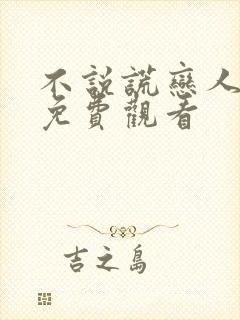 不説謊戀人
免費觀看
吉之島